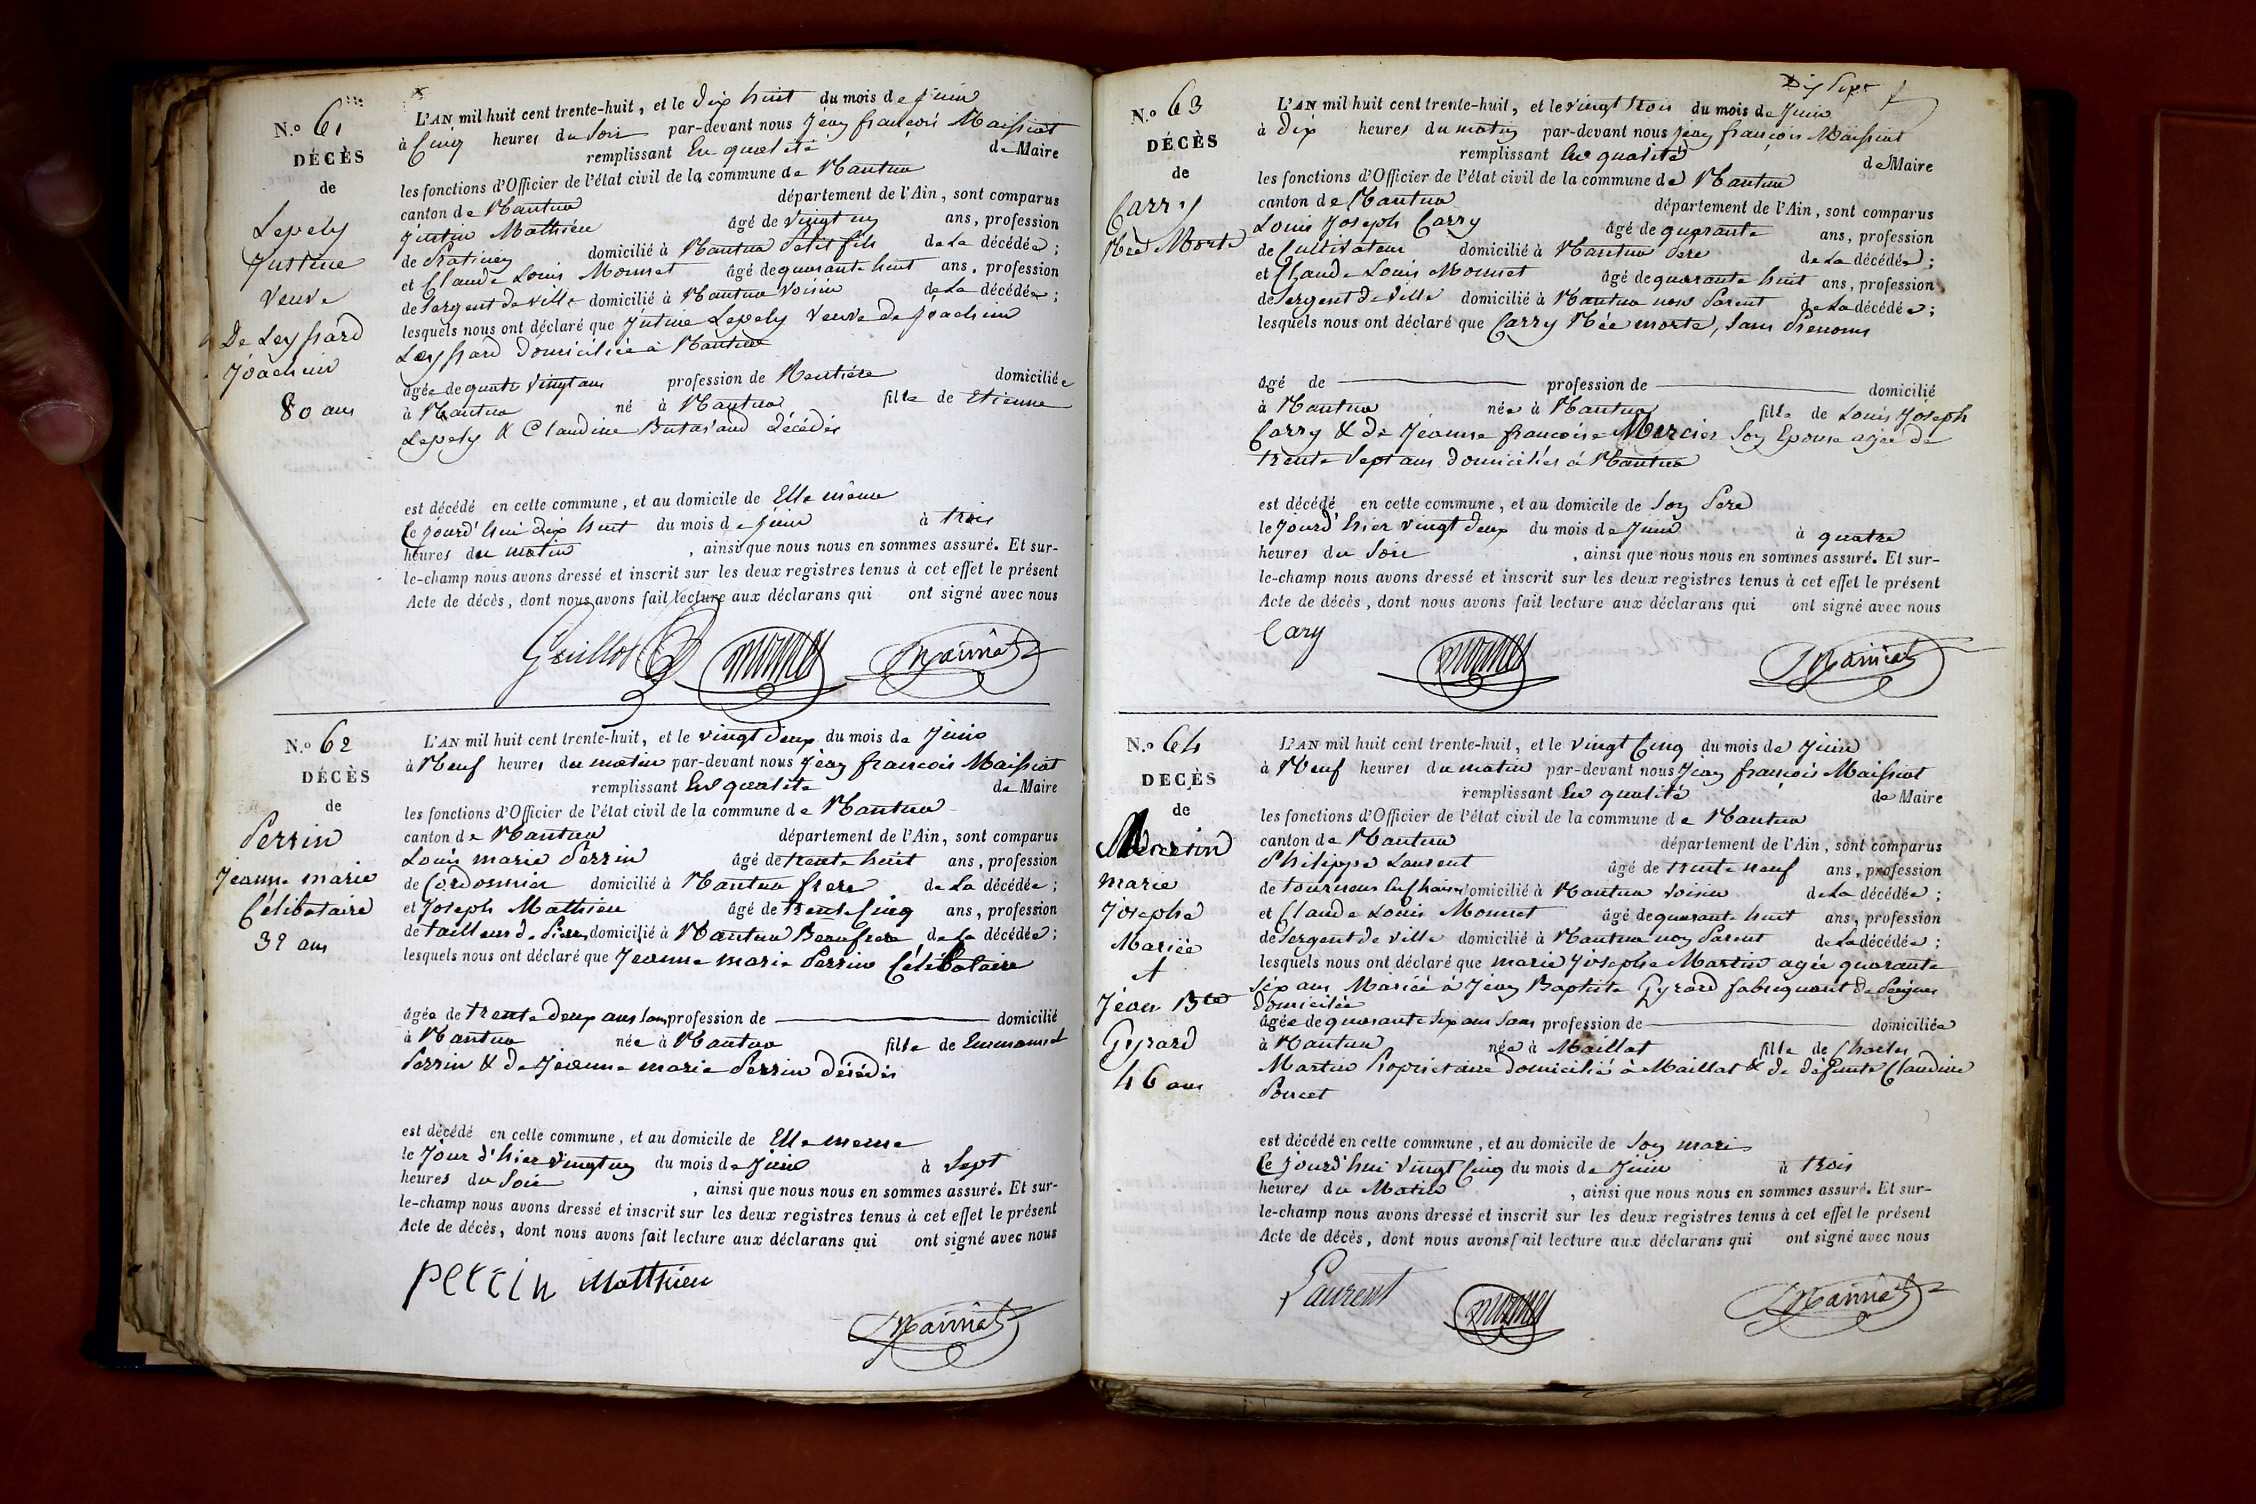 N.o 61
DÉCÈS
de
Lepely
Justine
veuve
De Leyssard
Joachim
80 ans
L'AN mil huit cent trente-huit, et le dix huit du mois de juin
à Cinq heures du Soir par-devant nous Jean françois Maissiat
remplissant En qualité de Maire
les fonctions d'Officier de l'état civil de la commune de Nantua
canton de Nantua département de l'Ain, sont comparus
Justin Mathieu âgé de vingt un ans, profession
de domicilié à Nantua Petit fils de La décédée;
et Claude Louis Monnet âgé de quarante huit ans, profession
de Sergent de ville domicilié à Nantua voisin de La décédée;
lesquels nous ont déclaré que Justine Lepely Veuve de Joachim
Leyssard domiciliée à Nantua
âgée de quatre vingt ans profession de Rentière domiciliée
à Nantua né à Nantua fille de Etienne
Lepely & Claudine décédés
est décédé en cette commune, et au domicile de Elle même
le jourd'hui dix huit du mois de juin à trois
heures du matin, ainsi que nous nous en sommes assuré. Et sur-
le-champ nous avons dressé et inscrit sur les deux registres tenus à cet effet le présent
Acte de décès, dont nous avons fait lecture aux déclarans qui ont signé avec nous
Monnet Maissiat
N.o 62
DÉCÈS
de
Perrin
Jeanne marie
Célibataire
32 ans
L'AN mil huit cent trente-huit, et le vingt deux du mois de Juin
à Neuf heures du matin par-devant nous Jean françois Maissiat
remplissant En qualité de Maire
les fonctions d'Officier de l'état civil de la commune de Nantua
canton de Nantua département de l'Ain, sont comparus
Louis marie Perrin âgé de trente huit ans, profession
de Cordonnier domicilié à Nantua frere de La décédée;
et Joseph Mathieu âgé de trente Cinq ans, profession
de tailleur de Pierre domicilié à Nantua Beaufrere de La décédée;
lesquels nous ont déclaré que Jeanne marie Perrin Célibataire
âgée de trente deux ans sans profession de domicilié
à Nantua née à Nantua fille de Emmanuel
Perrin & de Jeanne marie Perrin décédés
est décédé en cette commune, et au domicile de Elle meme
le Jour d'hier vingt un du mois de Juin à Sept
heures du Soir, ainsi que nous nous en sommes assuré. Et sur-
le-champ nous avons dressé et inscrit sur les deux registres tenus à cet effet le présent
Acte de décès, dont nous avons fait lecture aux déclarans qui ont signé avec nous
perrin Matthieu
Maissiat
Dix Sept
N.o 63
DÉCÈS
de
Carry
Née Morte
L'AN mil huit cent trente-huit, et le vingt trois du mois de Juin
à Dix heures du matin par-devant nous Jean françois Maissiat
remplissant En qualité de Maire
les fonctions d'Officier de l'état civil de la commune de Nantua
canton de Nantua département de l'Ain, sont comparus
Louis Joseph Carry âgé de quarante ans, profession
de Cultivateur domicilié à Nantua Pere de La décédée;
et Claude Louis Monnet âgé de quarante huit ans, profession
de Sergent de Ville domicilié à Nantua non Parent de La décédée;
lesquels nous ont déclaré que Carry Née morte, Sans Prenoms
âgé de profession de domicilié
à Nantua née à Nantua fille de Louis Joseph
Carry & de Jeanne françoise Mercier Son Epouse agée de
trente Sept ans domiciliés à Nantua
est décédé en cette commune, et au domicile de Son Pere
le Jourd'hier vingt deux du mois de Juin à quatre
heures du Soir, ainsi que nous nous en sommes assuré. Et sur-
le-champ nous avons dressé et inscrit sur les deux registres tenus à cet effet le présent
Acte de décès, dont nous avons fait lecture aux déclarans qui ont signé avec nous
Cary Monnet Maissiat
N.o 64
DECÈS
de
Martin
marie
Josephe
Mariée
A
Jean Bte
Gyrard
46 ans
L'AN mil huit cent trente-huit, et le vingt Cinq du mois de Juin
à Neuf heures du matin par-devant nous Jean françois Maissiat
remplissant En qualité de Maire
les fonctions d'Officier de l'état civil de la commune de Nantua
canton de Nantua département de l'Ain, sont comparus
Philippe Laurent âgé de trente neuf ans, profession
de tourneur domicilié à Nantua Voisin de La décédée;
et Claude Louis Monnet âgé de quarante huit ans, profession
de Sergent de Ville domicilié à Nantua non Parent de La décédée;
lesquels nous ont déclaré que marie Josephe Martin agée quarante
Six ans Mariée à Jean Baptiste Gyrard fabriquant de Peignes
domiciliée
âgée de quarante Six ans Sans profession de domiciliée
à Nantua née à Maillat fille de Charles
Martin Propriétaire domicilié à Maillat & de défunte Claudine
Poncet
est décédé en cette commune, et au domicile de Son mari
le Jourd'hui vingt Cinq du mois de Juin à trois
heures du Matin, ainsi que nous nous en sommes assuré. Et sur-
le-champ nous avons dressé et inscrit sur les deux registres tenus à cet effet le présent
Acte de décès, dont nous avons fait lecture aux déclarans qui ont signé avec nous
Laurent Monnet Maissiat